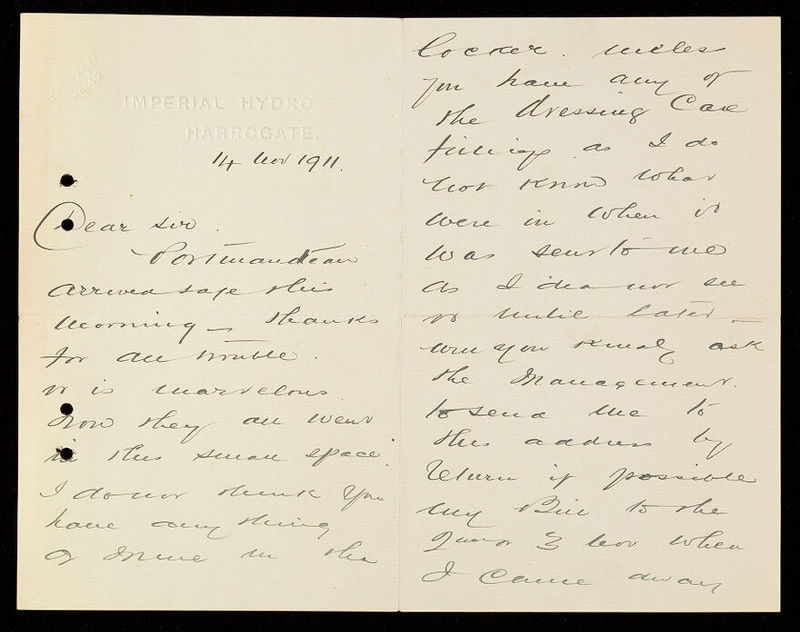 IMPERIAL HYDRO
HARROGATE.
14 Nov 1911.
Dear Sir.
Portmanteau
arrived safe this
morning – thanks
for all trouble.
It is marvelous
how they all went
in this small space.
I do not think you
have any thing
of mine in the
locker. unless
you have any of
the dressing Case
fittings as I do
not know what
were in when it
was sent to me
as I did not see
it until later –
will you kindly ask
the Management.
to send me to
this address by
return if possible
my Bill to the
3 Nov when
I came away